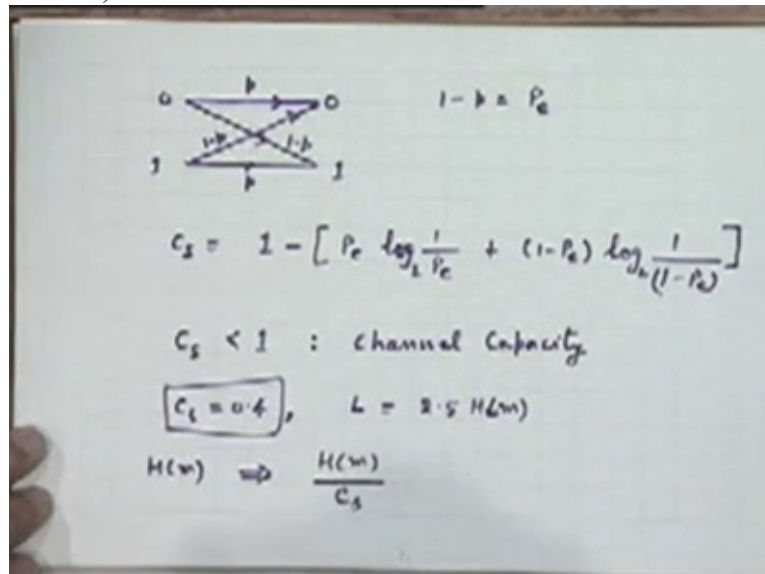 p
0 0 1-p = Pe
1-p 1-p
1 1
p
Cs = 1 - [ Pe log2 1/Pe + (1-Pe) log2 1/(1-Pe) ]
Cs < 1 : Channel Capacity
Cs = 0.4, L = 2.5 H(m)
H(m) ⇒ H(m)/Cs